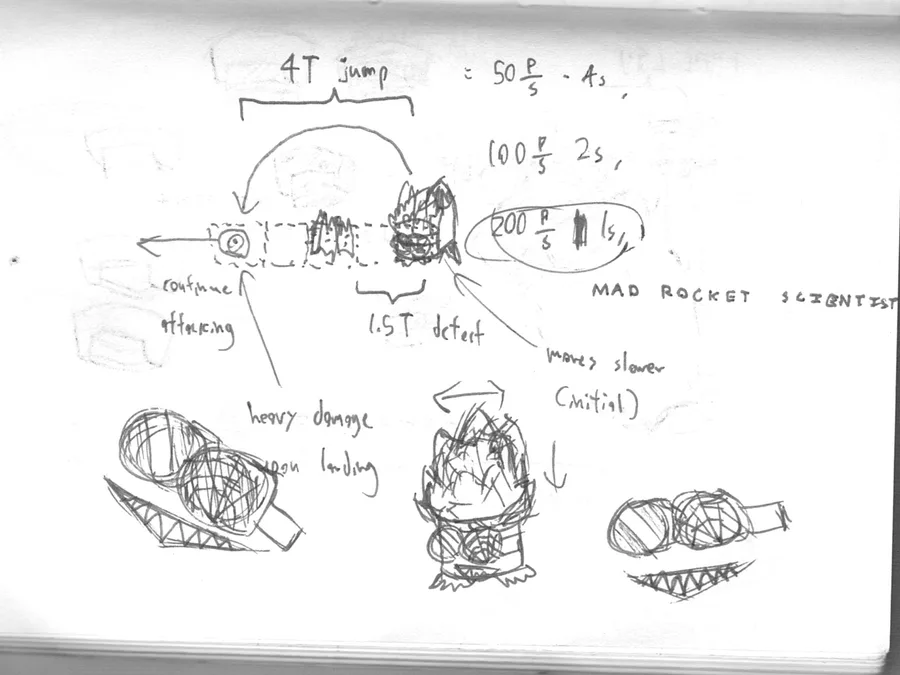 4T jump
= 50 P/s · 4s,
100 P/s 2s,
200 P/s 1s,
MAD ROCKET SCIENTIST
continue
attacking
1.5T detect
moves slower
(initial)
heavy damage
upon landing